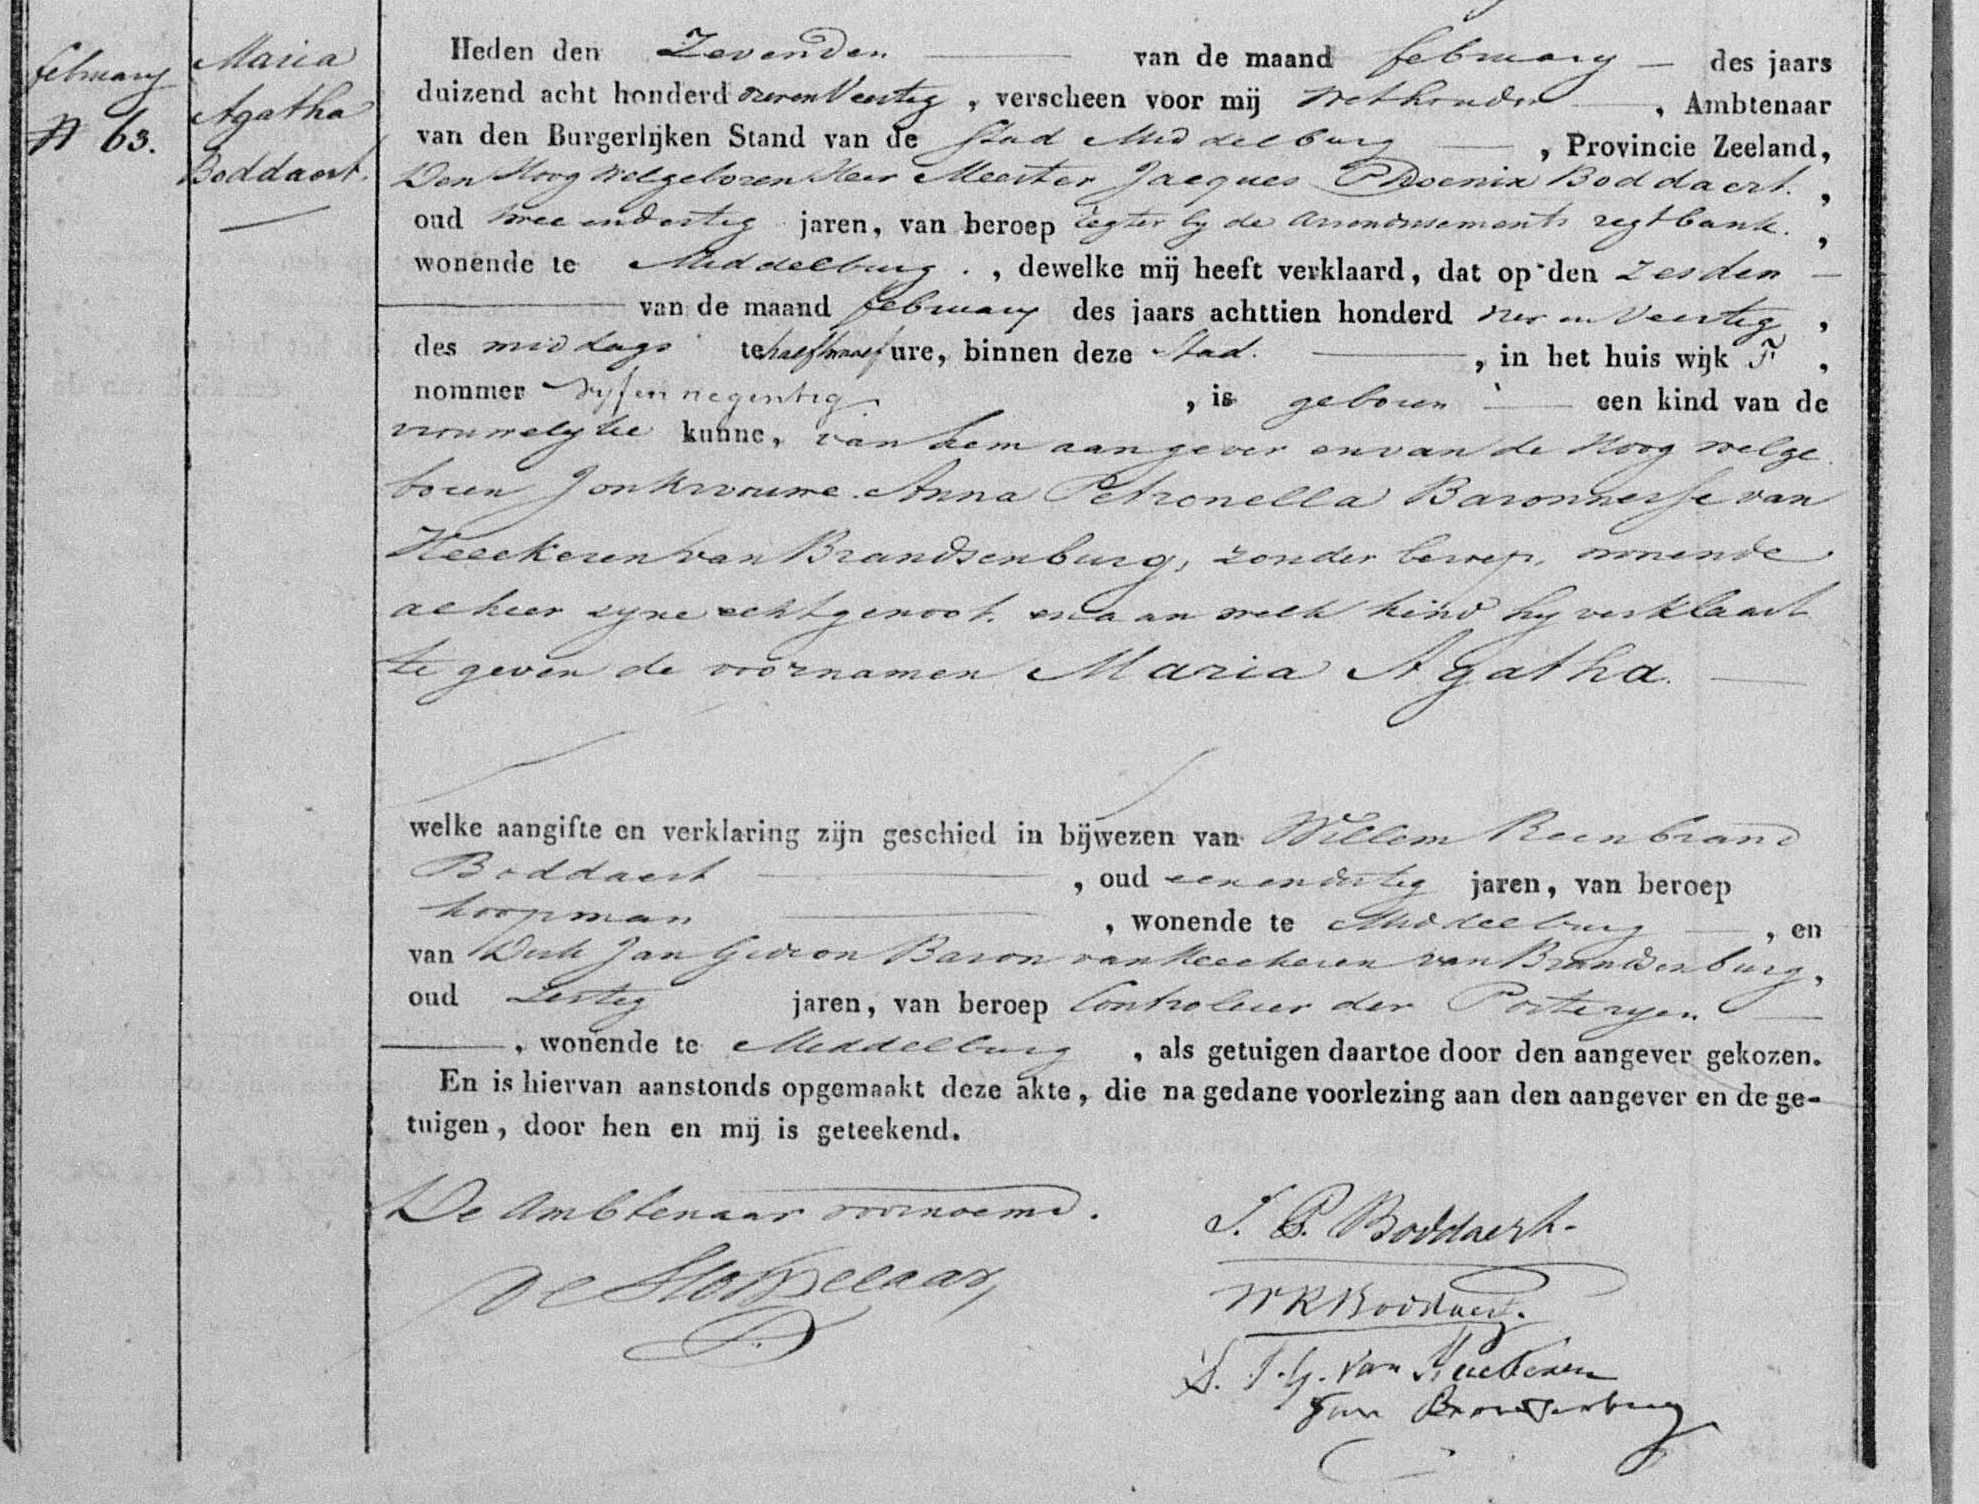 february
N 63.
Maria
Agatha
Boddaert.
Heden den Zevenden van de maand february des jaars
duizend acht honderd vier en Veertig, verscheen voor mij Wethouder, Ambtenaar
van den Burgerlijken Stand van de Stad Middelburg, Provincie Zeeland,
Den Hoog Welgeboren Heer Meester Jacques Phoenix Boddaert.,
oud twee en dertig jaren, van beroep regter by de arrondissements regtbank.,
wonende te Middelburg., dewelke mij heeft verklaard, dat op den zesden
van de maand february des jaars achttien honderd vier en Veertig,
des middags te half twaalf ure, binnen deze Stad., in het huis wijk F,
nommer vyf en negentig., is geboren een kind van de
vrouwelyke kunne, van hem aangever en van de Hoog welge
boren Jonkvrouwe Anna Petronella Baronnesse van
Heeckeren van Brandsenburg, zonder beroep, wonende
alhier zyne echtgenoot. en aan welk kind hy verklaart
te geven de voornamen Maria Agatha.
welke aangifte en verklaring zijn geschied in bijwezen van Willem Reinbrand
Boddaert, oud een en dertig jaren, van beroep
koopman, wonende te Middelburg, en
van Dirk Jan Gideon Baron van Heeckeren van Brandsenburg,
oud Zestig jaren, van beroep Controleur der Posteryen
, wonende te Middelburg, als getuigen daartoe door den aangever gekozen.
En is hiervan aanstonds opgemaakt deze akte, die na gedane voorlezing aan den aangever en de ge-
tuigen, door hen en mij is geteekend.
De Ambtenaar voornoemd.
J. P. Boddaert.
W R Boddaert.
D. J. G. van Heeckeren
van Brandsenburg